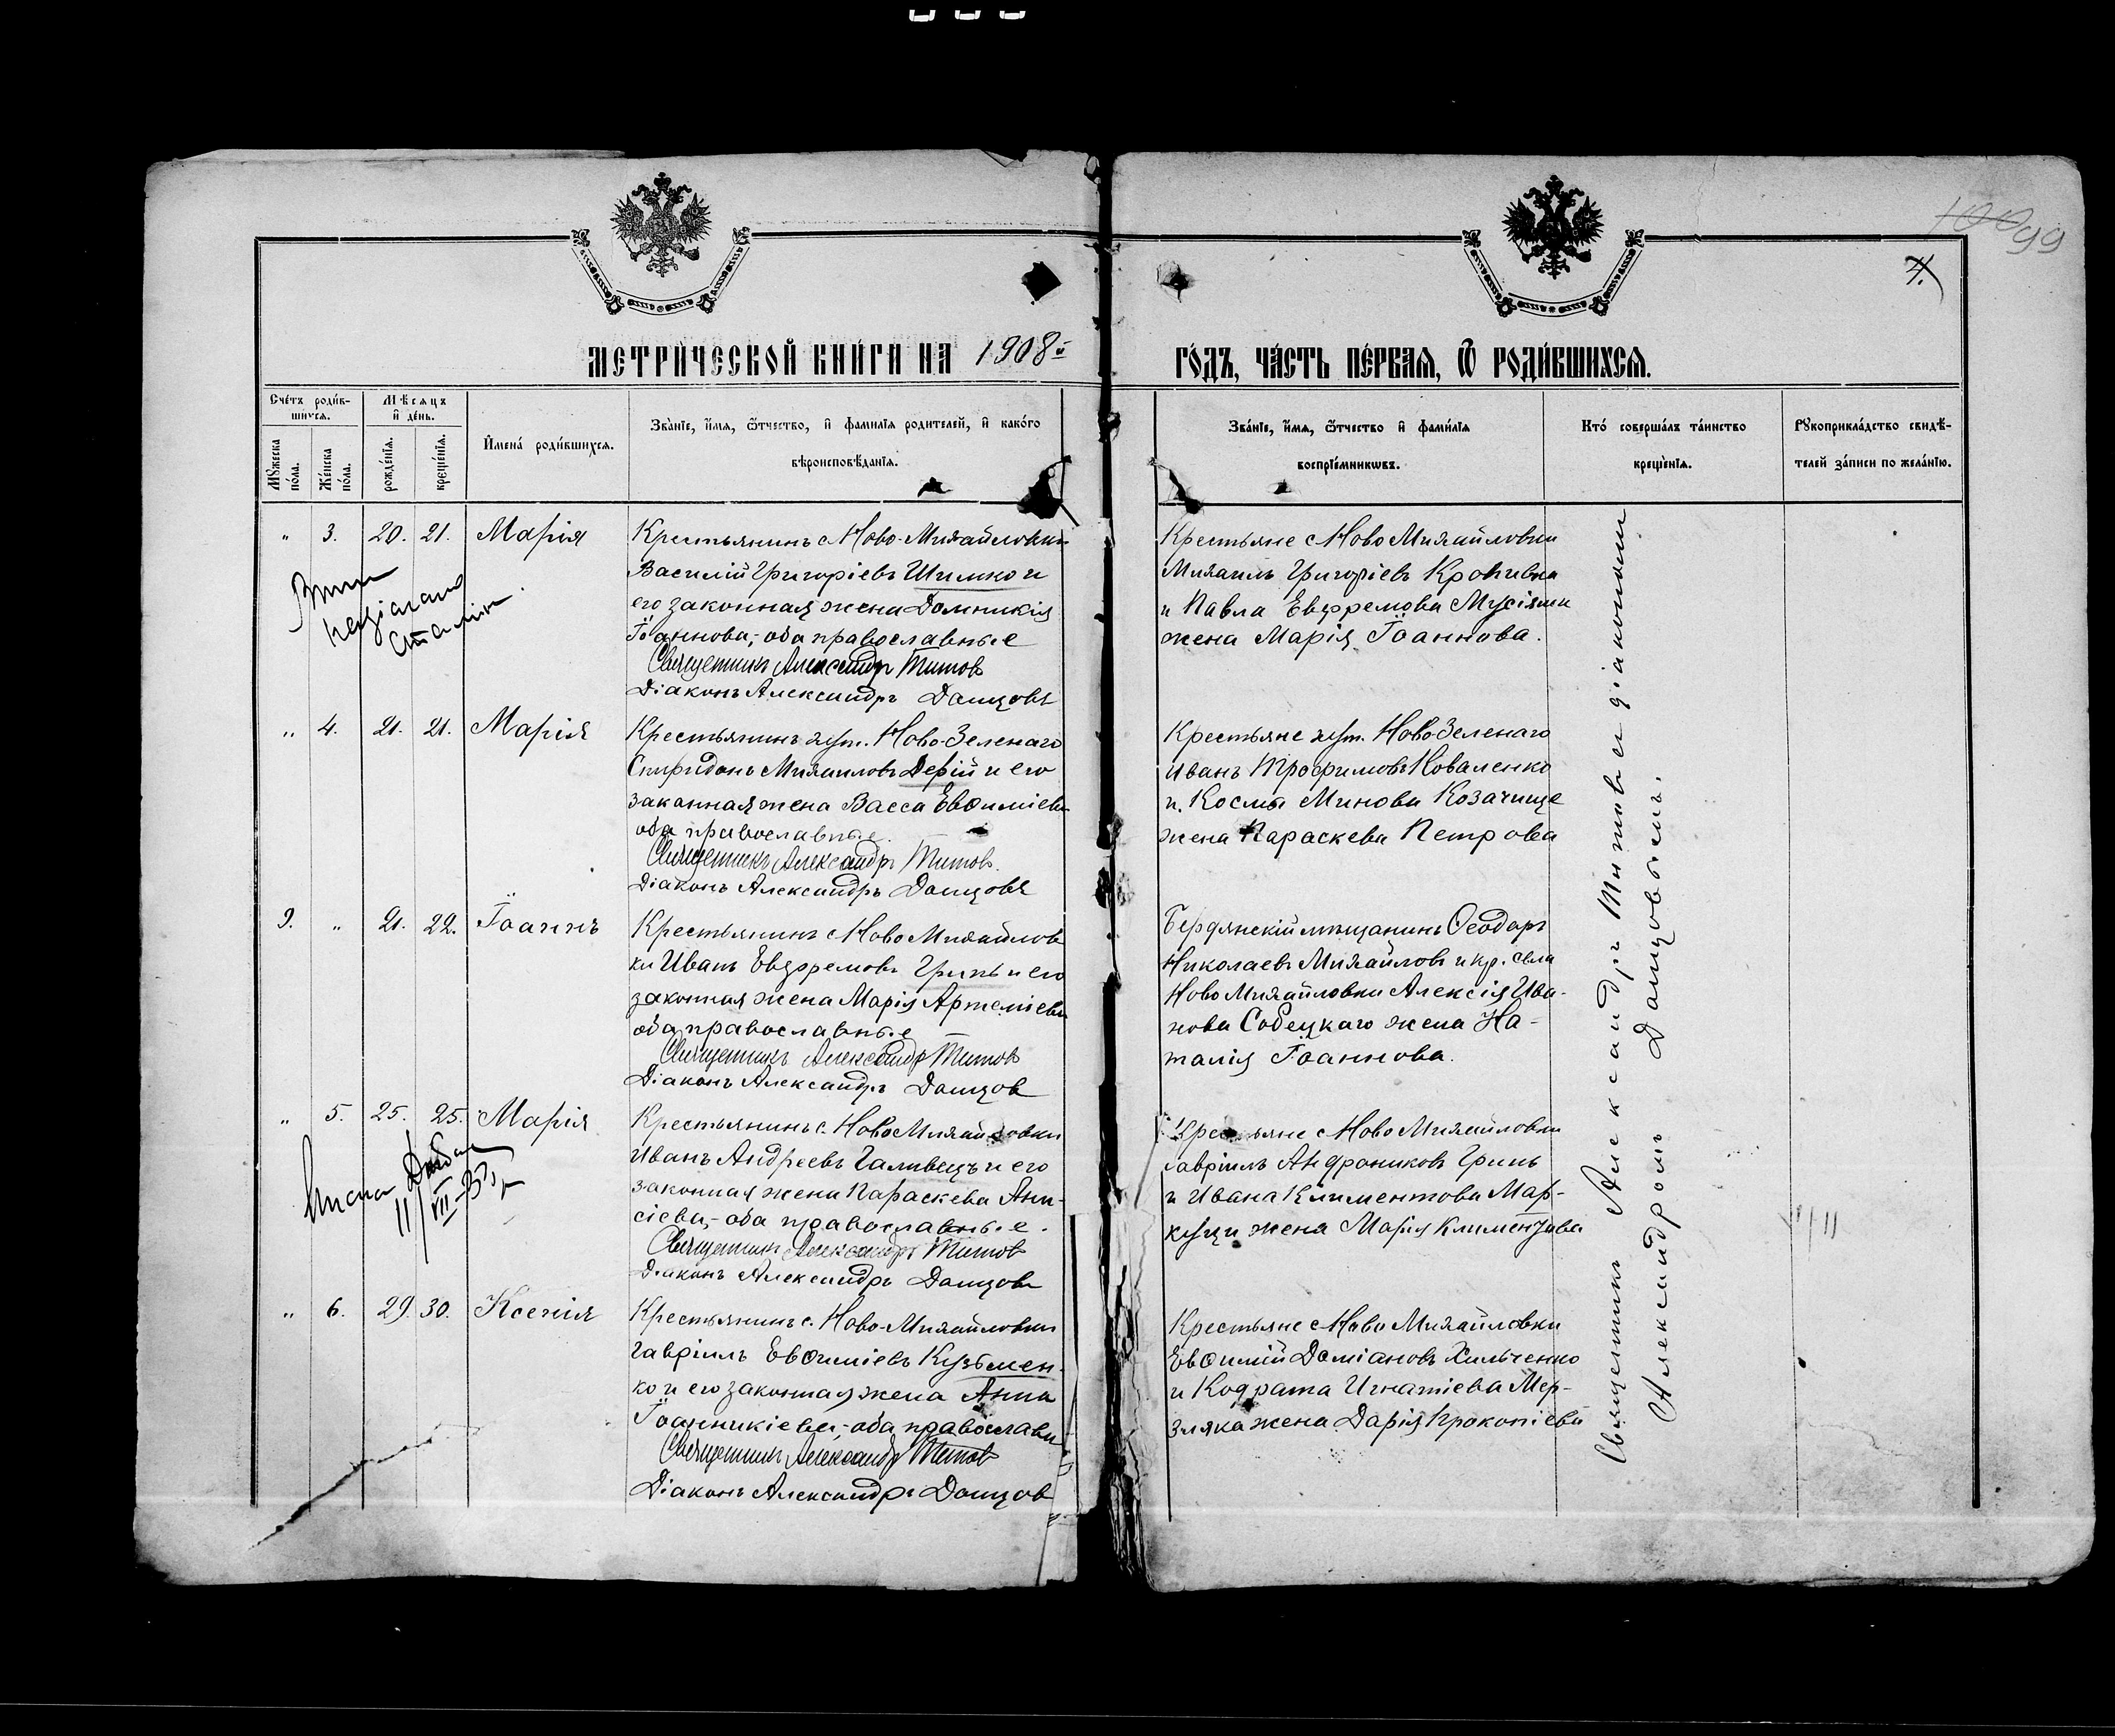 100 99
4.
МЕТРИЧЕСКОЙ КНИГИ НА 1908й ГОДЪ, ЧАСТЬ ПЕРВАЯ, Ѡ РОДИВШИХСЯ.
Счетъ родив-
шихся.
Мѣсяцъ
и день.
Мꙋжеска
пола.
Женска
пола.
рожденїя.
крещенїя.
Имена родившихся.
Званїе, имя, ѿчество, и фамилїя родителей, и какого
вѣроисповѣданїя.
Званїе, имя, ѿчество и фамилїя
воспрїемникѡвъ.
Кто совершалъ таинство
крещенїя.
Рꙋкоприкладство свидѣ-
телей записи по желанїю.
" 3. 20. 21. Марія
Крестьянинъ с Ново-Михайловки
Василій Григоріевъ Шимко и
его законная жена Домникія
Іоаннова,- оба православные
Священникъ Александръ Титовъ
Діаконъ Александръ Данцовъ
Крестьяне с Ново Михайловки
Михаилъ Григоріевъ Кропивка
и Павла Евфремова
жена Марія Іоаннова.
" 4. 21. 21. Марія
Крестьянинъ хут. Ново-Зеленаго
Спиридонъ Михаиловъ Дерій и его
законная жена Васса Евѳиміева
оба православные.
Священникъ Александръ Титовъ.
Діаконъ Александръ Данцовъ
Крестьяне хут. Ново Зеленаго
Иванъ Трофимовъ Коваленко
и Космы Минова Козачище
жена Параскева Петрова
9. " 21. 22. Іоаннъ
Крестьянинъ с Ново Михайлов
ки Иванъ Евдфремовъ Гринь и его
законная жена Марія Артеміева
оба православные
Священникъ Александръ Титовъ
Діаконъ Александръ Данцов
Бердянскій мѣщанинъ Ѳеодоръ
Николаевъ Михайловъ и кр. села
Ново Михайловки Алексія Ива-
нова Собецкаго жена На-
талія Іоаннова.
" 5. 25. 25. Марія
11/VII-35 г
Крестьянинъ с. Ново Михайловки
Иванъ Андреевъ Галивецъ и его
законная жена Параскева Ани-
сіева,- оба православные.
Священникъ Александръ Титовъ
Діаконъ Александръ Данцовъ
Крестьяне с Ново Михайловки
Гавріилъ Андрониковъ Гринь
и Ивана Климентова Мар-
куци жена Марія Климентова
" 6. 29. 30. Ксенія
Крестьянинъ с. Ново-Михайловки
Гавріилъ Евѳиміевъ Кузьмен-
ко и его законная жена Анна
Іоанникіева,- оба православн
Священникъ Александръ Титовъ
Діаконъ Александръ Данцов
Крестьяне с Ново Михайловки
Евѳимій Даміановъ Хильченко
и Кодрата Игнатіева Мер-
зляка жена Дарія Прокопіева
Священникъ Александръ Титовъ и діакономъ
Александромъ Данцовымъ.